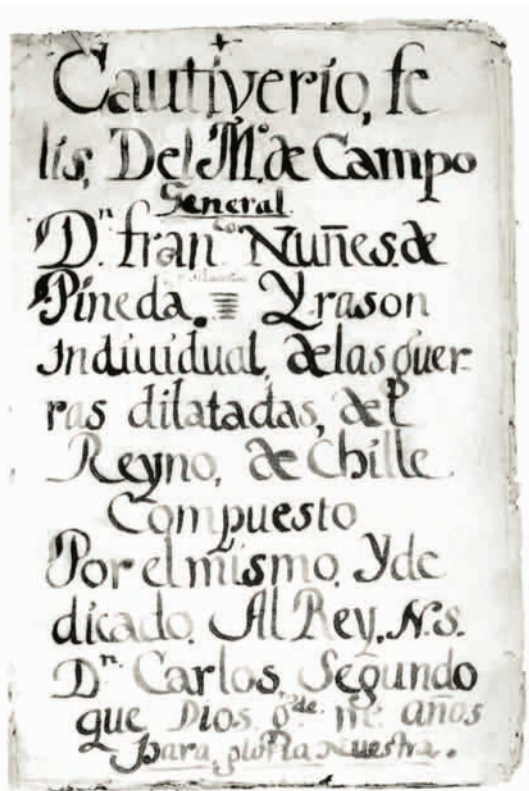 Cautiverio, fe
lis, Del M.º de Campo
General
D.ⁿ fran.ᶜᵒ Nuñes. de
Pineda. Y rason
Indiuidual, de las guer-
ras dilatadas, del
Reyno, de Chille
Compuesto
Por el mismo, Y de
dicado. Al Rey. N. s.
D.ⁿ Carlos, Segundo
que Dios g.ᵈᵉ m.ˢ años
para gloria nuestra.